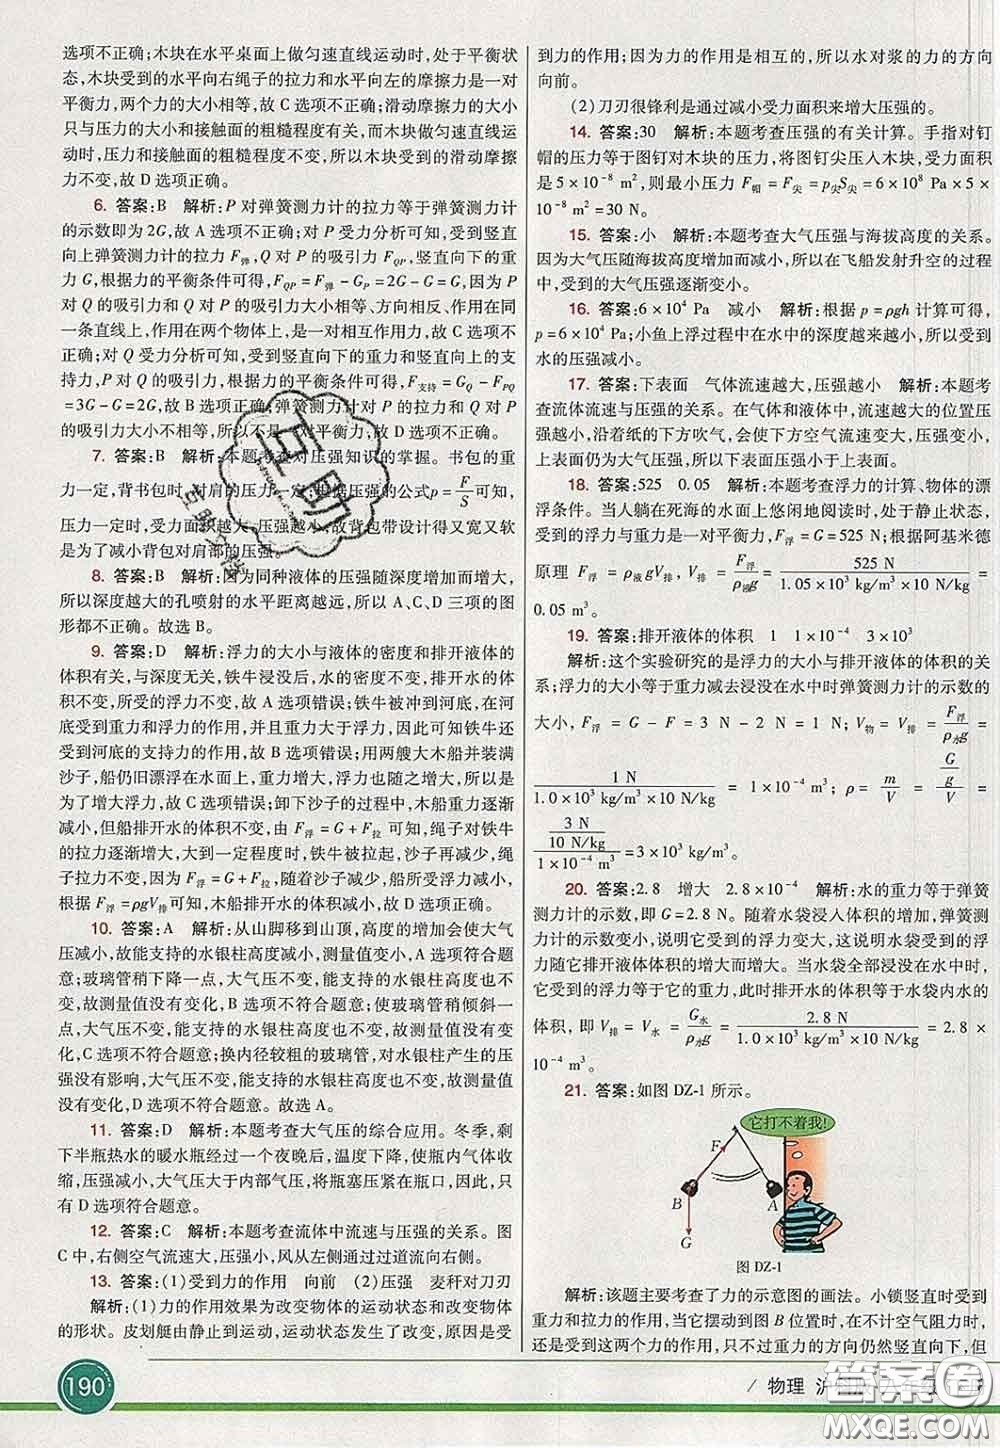 选项不正确;木块在水平桌面上做匀速直线运动时,处于平衡状
态,木块受到的水平向右绳子的拉力和水平向左的摩擦力是一对
平衡力,两个力的大小相等,故 C 选项不正确;滑动摩擦力的大小
只与压力的大小和接触面的粗糙程度有关,而木块做匀速直线运
动时,压力和接触面的粗糙程度不变,所以木块受到的滑动摩擦
力不变,故 D 选项正确。
6. 答案:B 解析:P 对弹簧测力计的拉力等于弹簧测力计
的示数即为 2G,故 A 选项不正确;对 P 受力分析可知,受到竖直
向上弹簧测力计的拉力 F弹,Q 对 P 的吸引力 F_QP,竖直向下的重
力 G,根据力的平衡条件可得,F_QP=F弹-G_P=2G-G=G,因为 P
对 Q 的吸引力和 Q 对 P 的吸引力大小相等、方向相反、作用在同
一条直线上,作用在两个物体上,是一对相互作用力,故 C 选项不
正确;对 Q 受力分析可知,受到竖直向下的重力和竖直向上的支
持力,P 对 Q 的吸引力,根据力的平衡条件可得,F支持=G_Q-F_PQ
=3G-G=2G,故 B 选项正确;弹簧测力计对 P 的拉力和 P 对 Q 的
吸引力大小不相等,所以不是一对平衡力,故 D 选项不正确。
7. 答案:B 解析:本题考查对压强知识的掌握。书包的重
力一定,背书包时,对肩的压力一定;根据压强的公式 p=F/S可知,
压力一定时,受力面积越大,压强越小,故背包带设计得又宽又软
是为了减小背包对肩部的压强。
8. 答案:B 解析:因为同种液体的压强随深度增加而增大,
所以深度越大的孔喷射的水平距离越远,所以 A、C、D 三项的图
形都不正确。故选 B。
9. 答案:D 解析:浮力的大小与液体的密度和排开液体的体积
有关,与深度无关,铁牛浸没后,水的密度不变,排开水的体
积不变,所受的浮力不变,故 A 选项错误;铁牛被冲到河底,在河
底受到重力和浮力的作用,并且重力大于浮力,因此可知铁牛还
受到河底的支持力的作用,故 B 选项错误;用两艘大木船并装满
沙子,船仍旧漂浮在水面上,重力增大,浮力也随之增大,所以是
改变的,故 C 选项错误;卸下沙子的过程中,木船重力逐渐
减小,但船排开水的体积不变,由 F浮=G+F拉 可知,绳子对铁牛
的拉力逐渐增大,大到一定程度时,铁牛被拉起,沙子再减少,绳
子拉力不变,因为 F浮=G+F拉,随着船重力减少,浮力减小,
根据 F浮=ρgV排 可知,木船排开水的体积减小,故 D 选项正确。
10. 答案:A 解析:从山脚移到山顶,高度的增加会使大气
压减小,故能支持的水银柱高度减小,测量值变小,A 选项符合题
意;玻璃管稍下降一点,大气压不变,能支持的水银柱高度也不
变,故测量值没有变化,B 选项不符合题意;使玻璃管稍倾斜一
点,大气压不变,能支持的水银柱高度也不变,故测量值没有变
化,C 选项不符合题意;换内径较粗的玻璃管,对水银柱产生的压
强没有影响,大气压不变,能支持的水银柱高度不变,故测量值
没有变化,D 选项不符合题意。故选 A。
11. 答案:D 解析:本题考查大气压的综合应用。冬季,剩
下半瓶热水的暖水瓶经过一个夜晚后,温度降低,瓶内气体遇冷
收缩,压强减小,大气压大于内部气压,将瓶塞压紧在瓶口,因此,只
有 D 选项符合题意。
12. 答案:C 解析:本题考查流体中流速与压强的关系。图
C 中,右侧空气流速大,压强小,风从左侧通过过道流向右侧。
13. 答案:(1)受到力的作用 向前 (2)压强 麦秆对刀刃
解析:(1)力的作用效果为改变物体的运动状态和改变物体
的形状。皮划艇由静止到运动,运动状态发生了改变,原因是受
到力的作用;因为力的作用是相互的,所以水对桨的力的方向
向前。
(2)刀刃很锋利是通过减小受力面积来增大压强的。
14. 答案:30 解析:本题考查压强的有关计算。手指对钉
帽的压力等于图钉对木块的压力,将图钉尖压入木块,受力面积
是 5×10⁻⁸ m²,则最小压力 F帽=F尖=p尖S尖=6×10⁸ Pa×5×
10⁻⁸ m²=30 N。
15. 答案:小 解析:本题考查大气压强与海拔高度的关系。
因为大气压随海拔高度增加而减小,所以在飞船发射升空的过程
中,受到的大气压强逐渐变小。
16. 答案:6×10⁴ Pa 减小 解析:根据 p=ρgh 计算可得,
p=6×10⁴ Pa;小鱼上浮过程中在水中的深度越来越小,所以受到
水的压强减小。
17. 答案:下表面 气体流速越大,压强越小 解析:本题考
查流体流速与压强的关系。在气体和液体中,流速越大的位置压
强越小,沿着纸的下方吹气,会使下方空气流速变大,压强变小,
上表面仍为大气压强,所以下表面压强小于上表面。
18. 答案:525 0.05 解析:本题考查浮力的计算、物体的漂
浮条件。当人躺在死海的水面上悠闲地阅读时,处于静止状态,
受到的浮力与重力是一对平衡力,F浮=G=525 N;根据阿基米德
原理 F浮=ρ液gV排,V排=F浮/(ρ液g)=525 N/(1.05×10³ kg/m³×10 N/kg)=
0.05 m³。
19. 答案:排开液体的体积 1 1×10⁻⁴ 3×10³
解析:这个实验研究的是浮力的大小与排开液体的体积的关
系;浮力的大小等于重力减去浸没在水中时弹簧测力计的示数的
大小,F浮=G-F=3 N-2 N=1 N;V物=V排=F浮/(ρ水g)=
1 N/(1.0×10³ kg/m³×10 N/kg)=1×10⁻⁴ m³;ρ=m/V=(G/g)/V=
(3 N/10 N/kg)/(1×10⁻⁴ m³)=3×10³ kg/m³。
20. 答案:2.8 增大 2.8×10⁻⁴ 解析:水的重力等于弹簧
测力计的示数,即 G=2.8 N。随着水袋浸入体积的增加,弹簧测
力计的示数变小,说明它受到的浮力变大,这说明水袋受到的浮
力随它排开液体体积的增大而增大。当水袋全部浸没在水中时,
它受到的浮力等于它的重力,此时排开水的体积等于水袋内水的
体积,即 V排=V水=G水/(ρ水g)=2.8 N/(1.0×10³ kg/m³×10 N/kg)=2.8
×10⁻⁴ m³。
21. 答案:如图 DZ-1 所示。
它打不着我!
F
B
A
G
图 DZ-1
解析:该题主要考查了力的示意图的画法。小锁竖直时受到
重力和拉力的作用,当它摆动到图 B 位置时,在不计空气阻力时
还是受到这两个力的作用,只不过重力的方向仍然竖直向下,但
190
/ 物理 沪
互助
答案圈
MXQE.COM